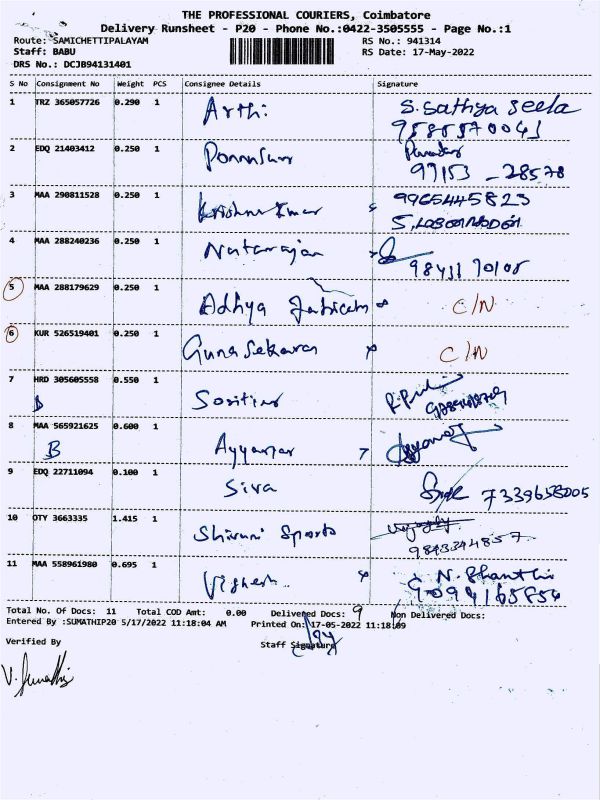 THE PROFESSIONAL COURIERS, Coimbatore
Delivery Runsheet - P20 - Phone No.:0422-3505555 - Page No.:1
Route: SAMICHETTIPALAYAM RS No.: 941314
Staff: BABU RS Date: 17-May-2022
DRS No.: DCJB94131401
S No Consignment No Weight PCS Consignee Details Signature
1 TRZ 365057726 0.290 1 Arthi S. Sathya Seela
2 EDQ 21403412 0.250 1 97153 - 28578
3 MAA 290811528 0.250 1 Krishna Kumar 9965445823
4 MAA 288240236 0.250 1 Natarajan
5 MAA 288179629 0.250 1 Adhya C/N
6 KUR 526519401 0.250 1 Gunasekaran C/N
7 HRD 305605558 0.550 1
8 MAA 565921625 0.600 1 Ayyanar 7
B
9 EDQ 22711094 0.100 1 Siva 7339658005
10 OTY 3663335 1.415 1 Shivani Sports
9843394857
11 MAA 558961980 0.695 1 Vignesh N. Shanthi
Total No. Of Docs: 11 Total COD Amt: 0.00 Delivered Docs: 9 Non Delivered Docs:
Entered By :SUMATHIP20 5/17/2022 11:18:04 AM Printed On:17-05-2022 11:18:09
Staff Signature
Verified By